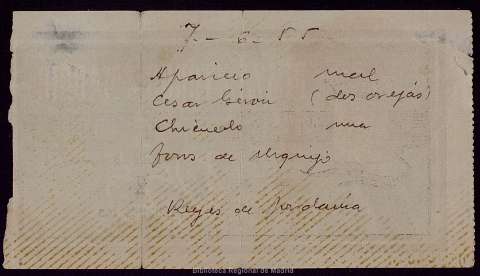 7 - 6 - 55
Aparicio mal
Cesar Girón (dos orejas)
Chicuelo una
fons de Urquijo
Reyes de Jordania
Biblioteca Regional de Madrid